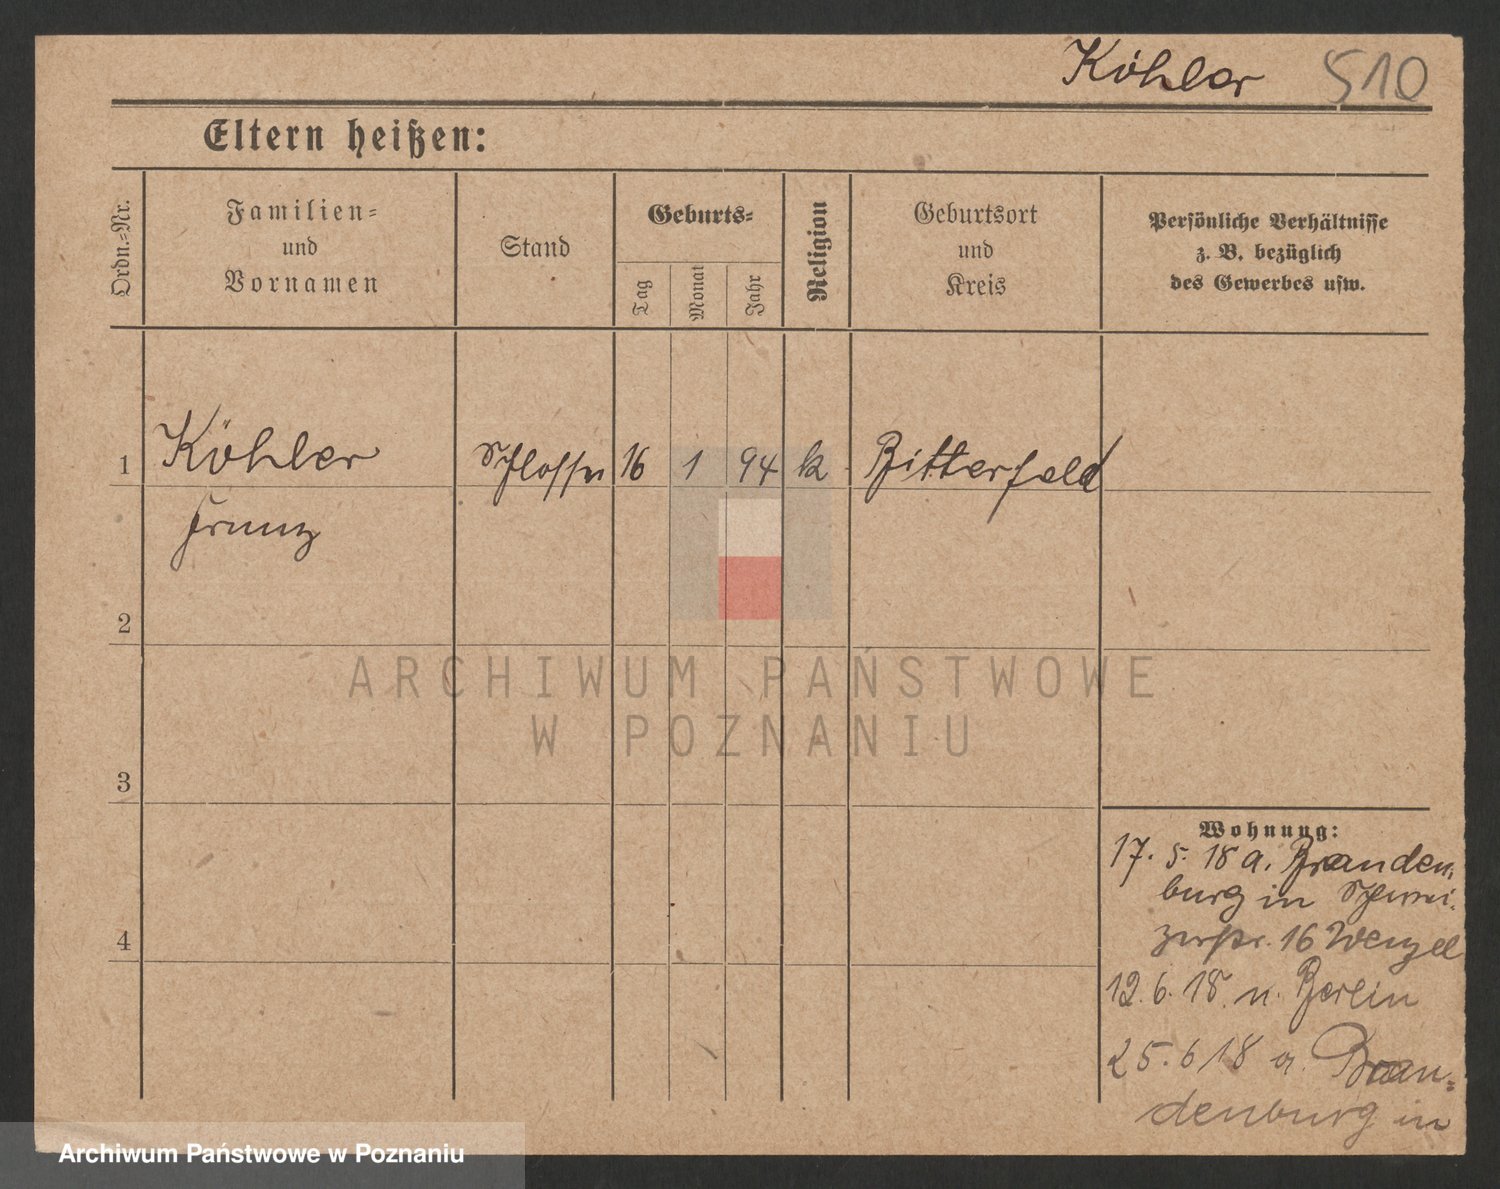 Köhler 510
Eltern heißen:
Ordn.=Nr.
Familien=
und
Vornamen
Stand
Geburts=
Tag
Monat
Jahr
Religion
Geburtsort
und
Kreis
Persönliche Verhältnisse
z. B. bezüglich
des Gewerbes usw.
1 Köhler Schlosser 16 1 94 k. Bitterfeld
Franz
2
3
4
Wohnung:
17. 5. 18 a. Branden
burg in Schwei
zerstr. 16 Wenzel
12. 6. 18. n. Berlin
25. 6 18 a. Bran=
denburg in
ARCHIWUM PAŃSTWOWE
W POZNANIU
Archiwum Państwowe w Poznaniu